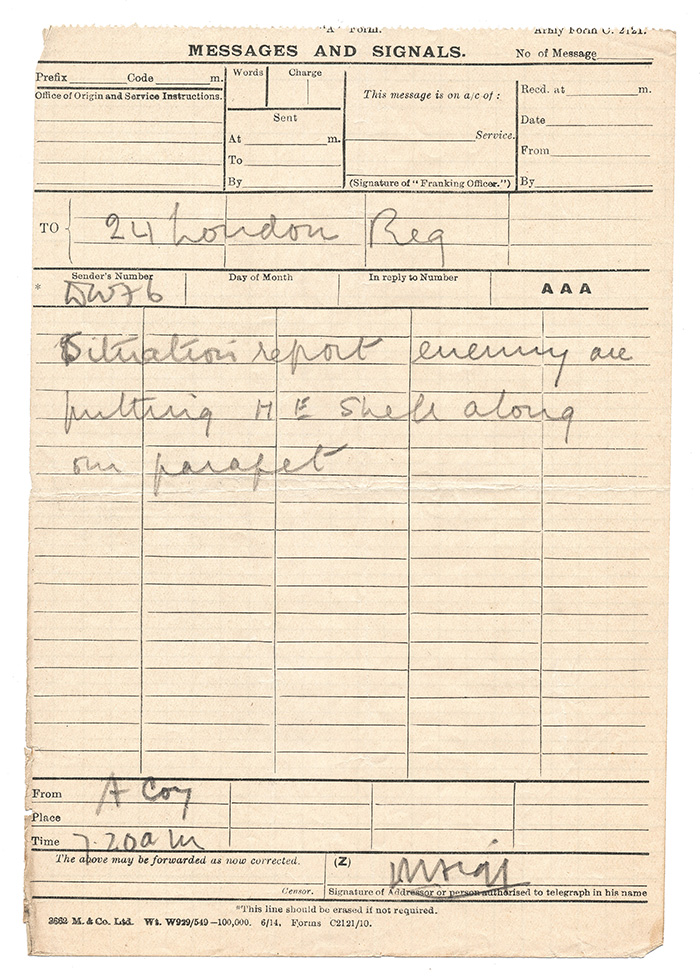 "A" Form. Army Form C. 2121.
MESSAGES AND SIGNALS. No of Message
Prefix Code m. Words Charge This message is on a/c of : Recd. at m.
Office of Origin and Service Instructions.
Sent Date
At m. Service. From
To
By (Signature of "Franking Officer.") By
TO 24 London Reg
Sender's Number Day of Month In reply to Number AAA
* DW76
Situation report enemy are
putting H E Shell along
our parapet
From A Coy
Place
Time 7.20 a m
The above may be forwarded as now corrected. (Z)
Censor. Signature of Addressor or person authorised to telegraph in his name
*This line should be erased if not required.
3662 M. & Co. Ltd. Wt. W929/549—100,000. 6/14. Forms C2121/10.